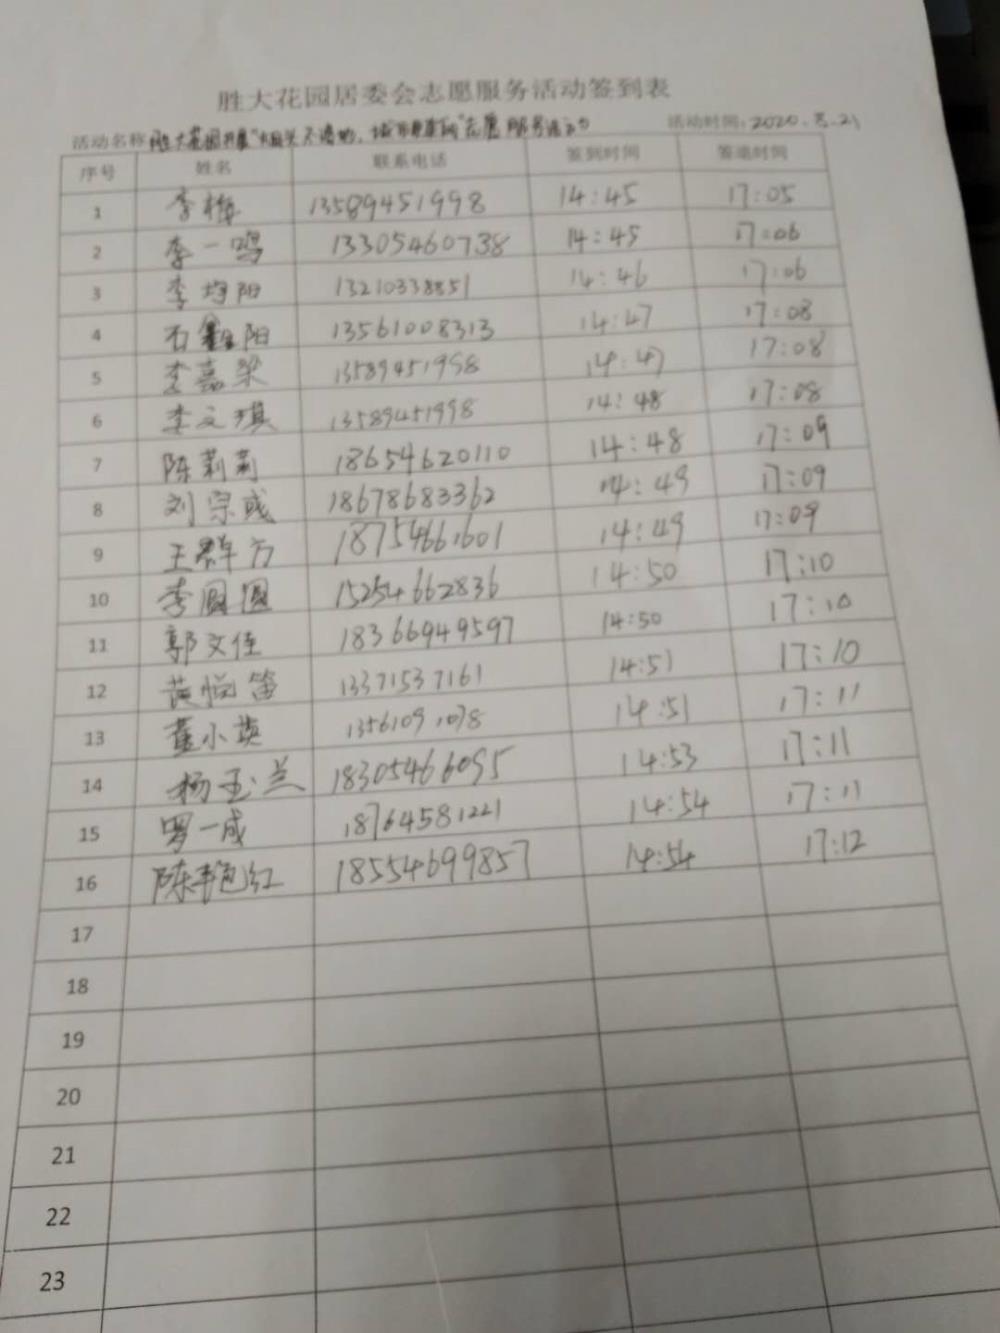 胜大花园居委会志愿服务活动签到表
活动名称 胜大花园开展"烟头不落地，城市更美丽"志愿服务活动 活动时间：2020.8.21
序号 姓名 联系电话 签到时间 签退时间
1 李梅 13589451998 14:45 17:05
2 李一鸣 13305460738 14:45 17:06
3 李均阳 13210338851 14:46 17:06
4 石 阳 13561008313 14:47 17:08
5 李嘉梁 13589451998 14:47 17:08
6 李文琪 13589451998 14:48 17:08
7 陈莉莉 18654620110 14:48 17:09
8 刘宗彧 18678683362 14:49 17:09
9 王群方 18754661601 14:49 17:09
10 李圆圆 15254662836 14:50 17:10
11 郭文佳 18366949597 14:50 17:10
12 黄 笛 13371537161 14:51 17:10
13 董小英 13561091078 14:51 17:11
14 杨玉兰 18305466095 14:53 17:11
15 罗一成 18764581221 14:54 17:11
16 陈艳红 18554699857 14:54 17:12
17
18
19
20
21
22
23